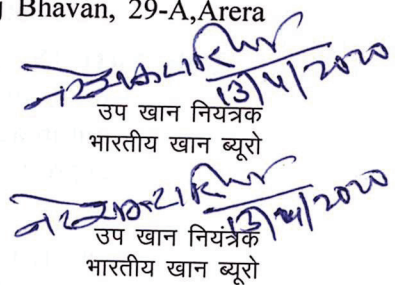 Bhavan, 29-A,Arera
13/4/2020
उप खान नियंत्रक
भारतीय खान ब्यूरो
13/4/2020
उप खान नियंत्रक
भारतीय खान ब्यूरो